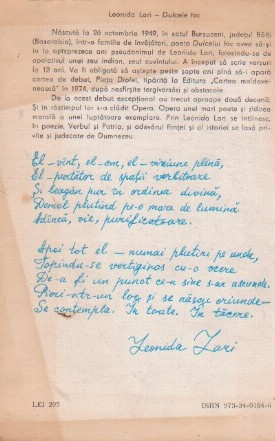 Leonida Lari – Dulcele foc
Născută la 26 octombrie 1949, în satul Bursuceni, județul Bălți
(Basarabia), într-o familie de învățători, poeta Dulcelui foc avea să-și
ia aptsprezece ani pseudonimul de Leonida Lari, folosindu-se de
apelativul unei seu indian, seul cuvântului. A început să scrie versuri
la 12 ani. Va fi obligată să aștepte peste șapte ani pînă să-i apară
cartea de debut, Piața Diolei, tipărită la Editura "Cartea moldove-
nească" în 1974, după nesfîrșite tergiversări și obstacole.
De la acest debut excepțional au trecut aproape două decenii.
Și în răstimpul lor s-a clădit Opera. Opera unei mari poete și zidirea
morală a unei luptătoare exemplare. Prin Leonida Lari se întîlnesc,
în poezie, Verbul și Patria, și adevărul ființei și al istoriei se lasă pri-
vite și judecate de Dumnezeu.
El – vînt, el – om, el – viziune plină,
El – purtător de spații vorbitoare
Și leagăn pur în ordinea divină,
Demel plutind pe-o mare de lumină
Adîncă, vie, purificatoare.
Apoi tot el – numai plutiri pe unde,
Topindu-se vertiginos cu-o vrere
De-a fi un punct ce-n sine s-ar ascunde.
Pieri-ntr-un loc și se născu oriunde –
Se contempla. În toate. În tăcere.
Leonida Lari
LEI 205
ISBN 973-34-0194-6